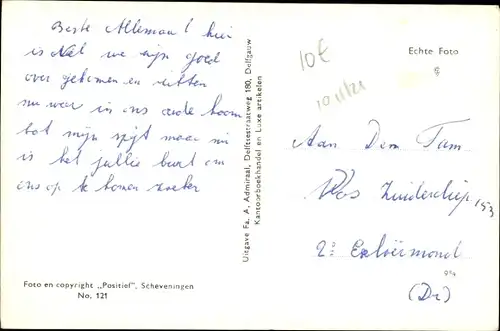 Beste Alleman! hier
is Nel we zijn goed
over gekomen en zitten
nu weer in ons oude boom
bot mijn spijt maar nu
is het jullie burt om
ons op te komen zoeken
Foto en copyright „Positief", Scheveningen
No. 121
Uitgave Fa. A. Admiraal, Delftsestraatweg 180, Delfgauw
Kantoorboekhandel en Luxe artikelen
10€
Echte Foto
Aan Dem Fam
Vos Zuiderdiep 153
2e Exloërmond
(Dr)